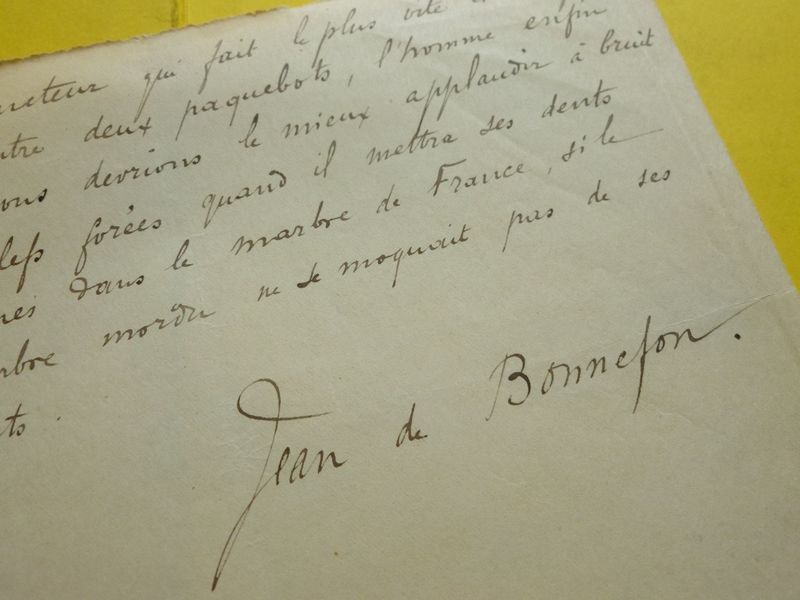 qui fait le plus vite
deux paquebots, l'homme enfin
devrions le mieux applaudir à bruit
forées quand il mettra ses dents
dans le marbre de France, si le
mordu ne se moquait pas de ses
Jean de Bonnefon.